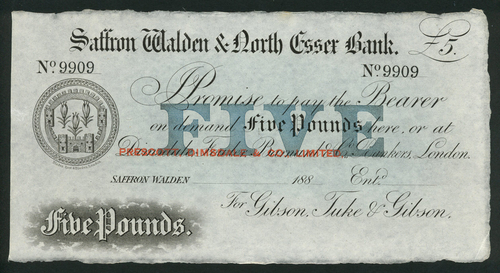 Saffron Walden & North Essex Bank. £5.
No. 9909 No. 9909
FIVE
I Promise to pay the Bearer
on demand Five Pounds here, or at
Bankers, London.
SAFFRON WALDEN 188 Entd.
For Gibson, Tuke & Gibson.
Five Pounds.